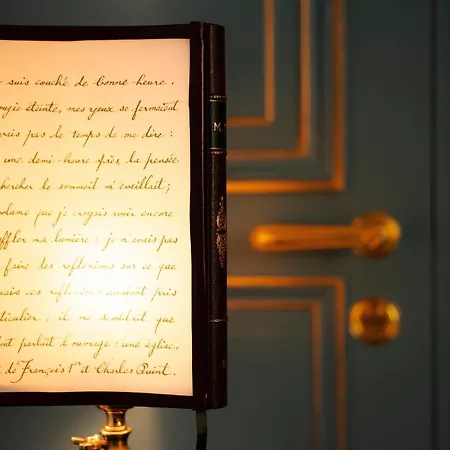 suis couché de bonne heure.
ougie éteinte, mes yeux se fermaient
vais pas le temps de me dire :
une demi-heure après, la pensée
chercher le sommeil m'éveillait ;
volume que je croyais avoir encore
uffler ma lumière : je n'avais pas
faire des réflexions sur ce que
mais ces réflexions avaient pris
ticulier ; il me semblait que
dont parlait l'ouvrage : une église,
de François 1er et Charles Quint.
M.